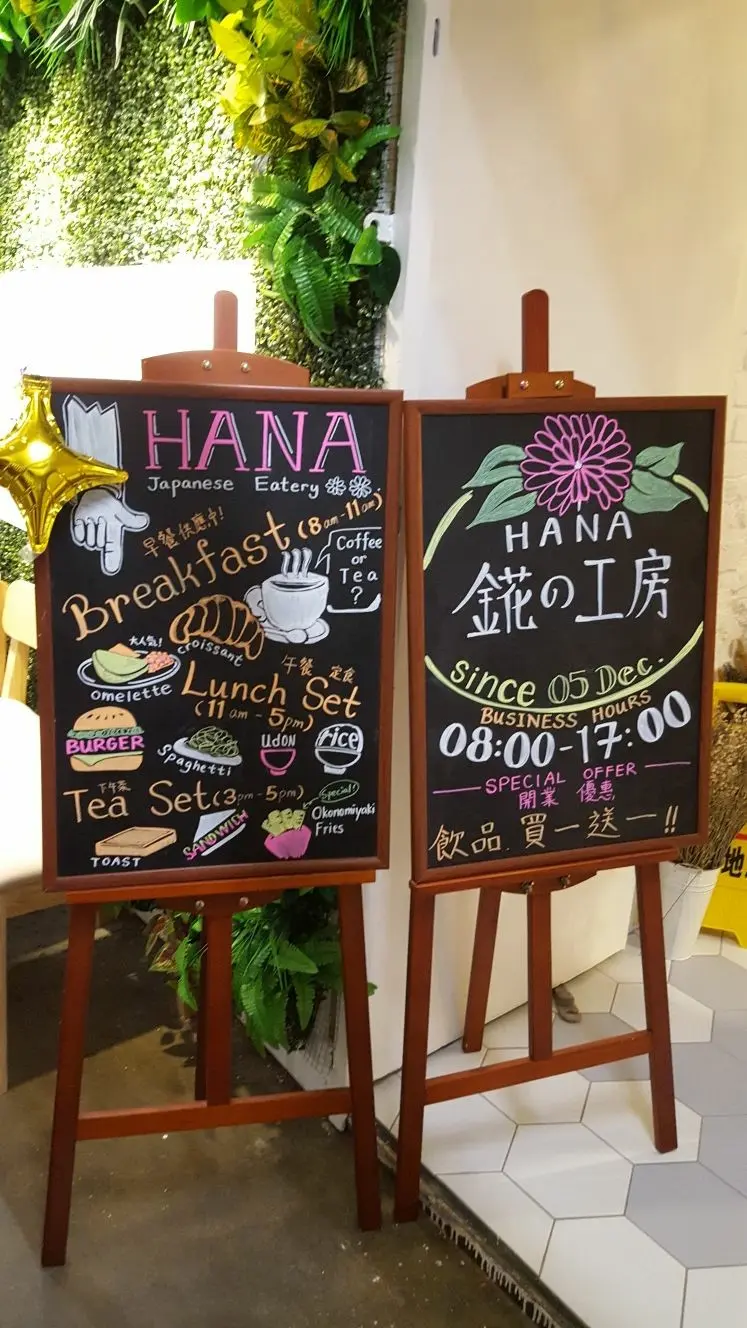 HANA
Japanese Eatery
早餐供應中!
Breakfast (8am-11am)
Coffee
or
Tea
?
croissant
大人氣!
omelette
午餐 定食
Lunch Set
(11am - 5pm)
BURGER
Spaghetti
UDON
rice
下午茶
Tea Set (3pm-5pm)
Special!
Okonomiyaki
Fries
TOAST
SANDWICH
HANA
錵の工房
since 05 Dec.
BUSINESS HOURS
08:00-17:00
SPECIAL OFFER
開業 優惠
飲品.買一送一!!
地